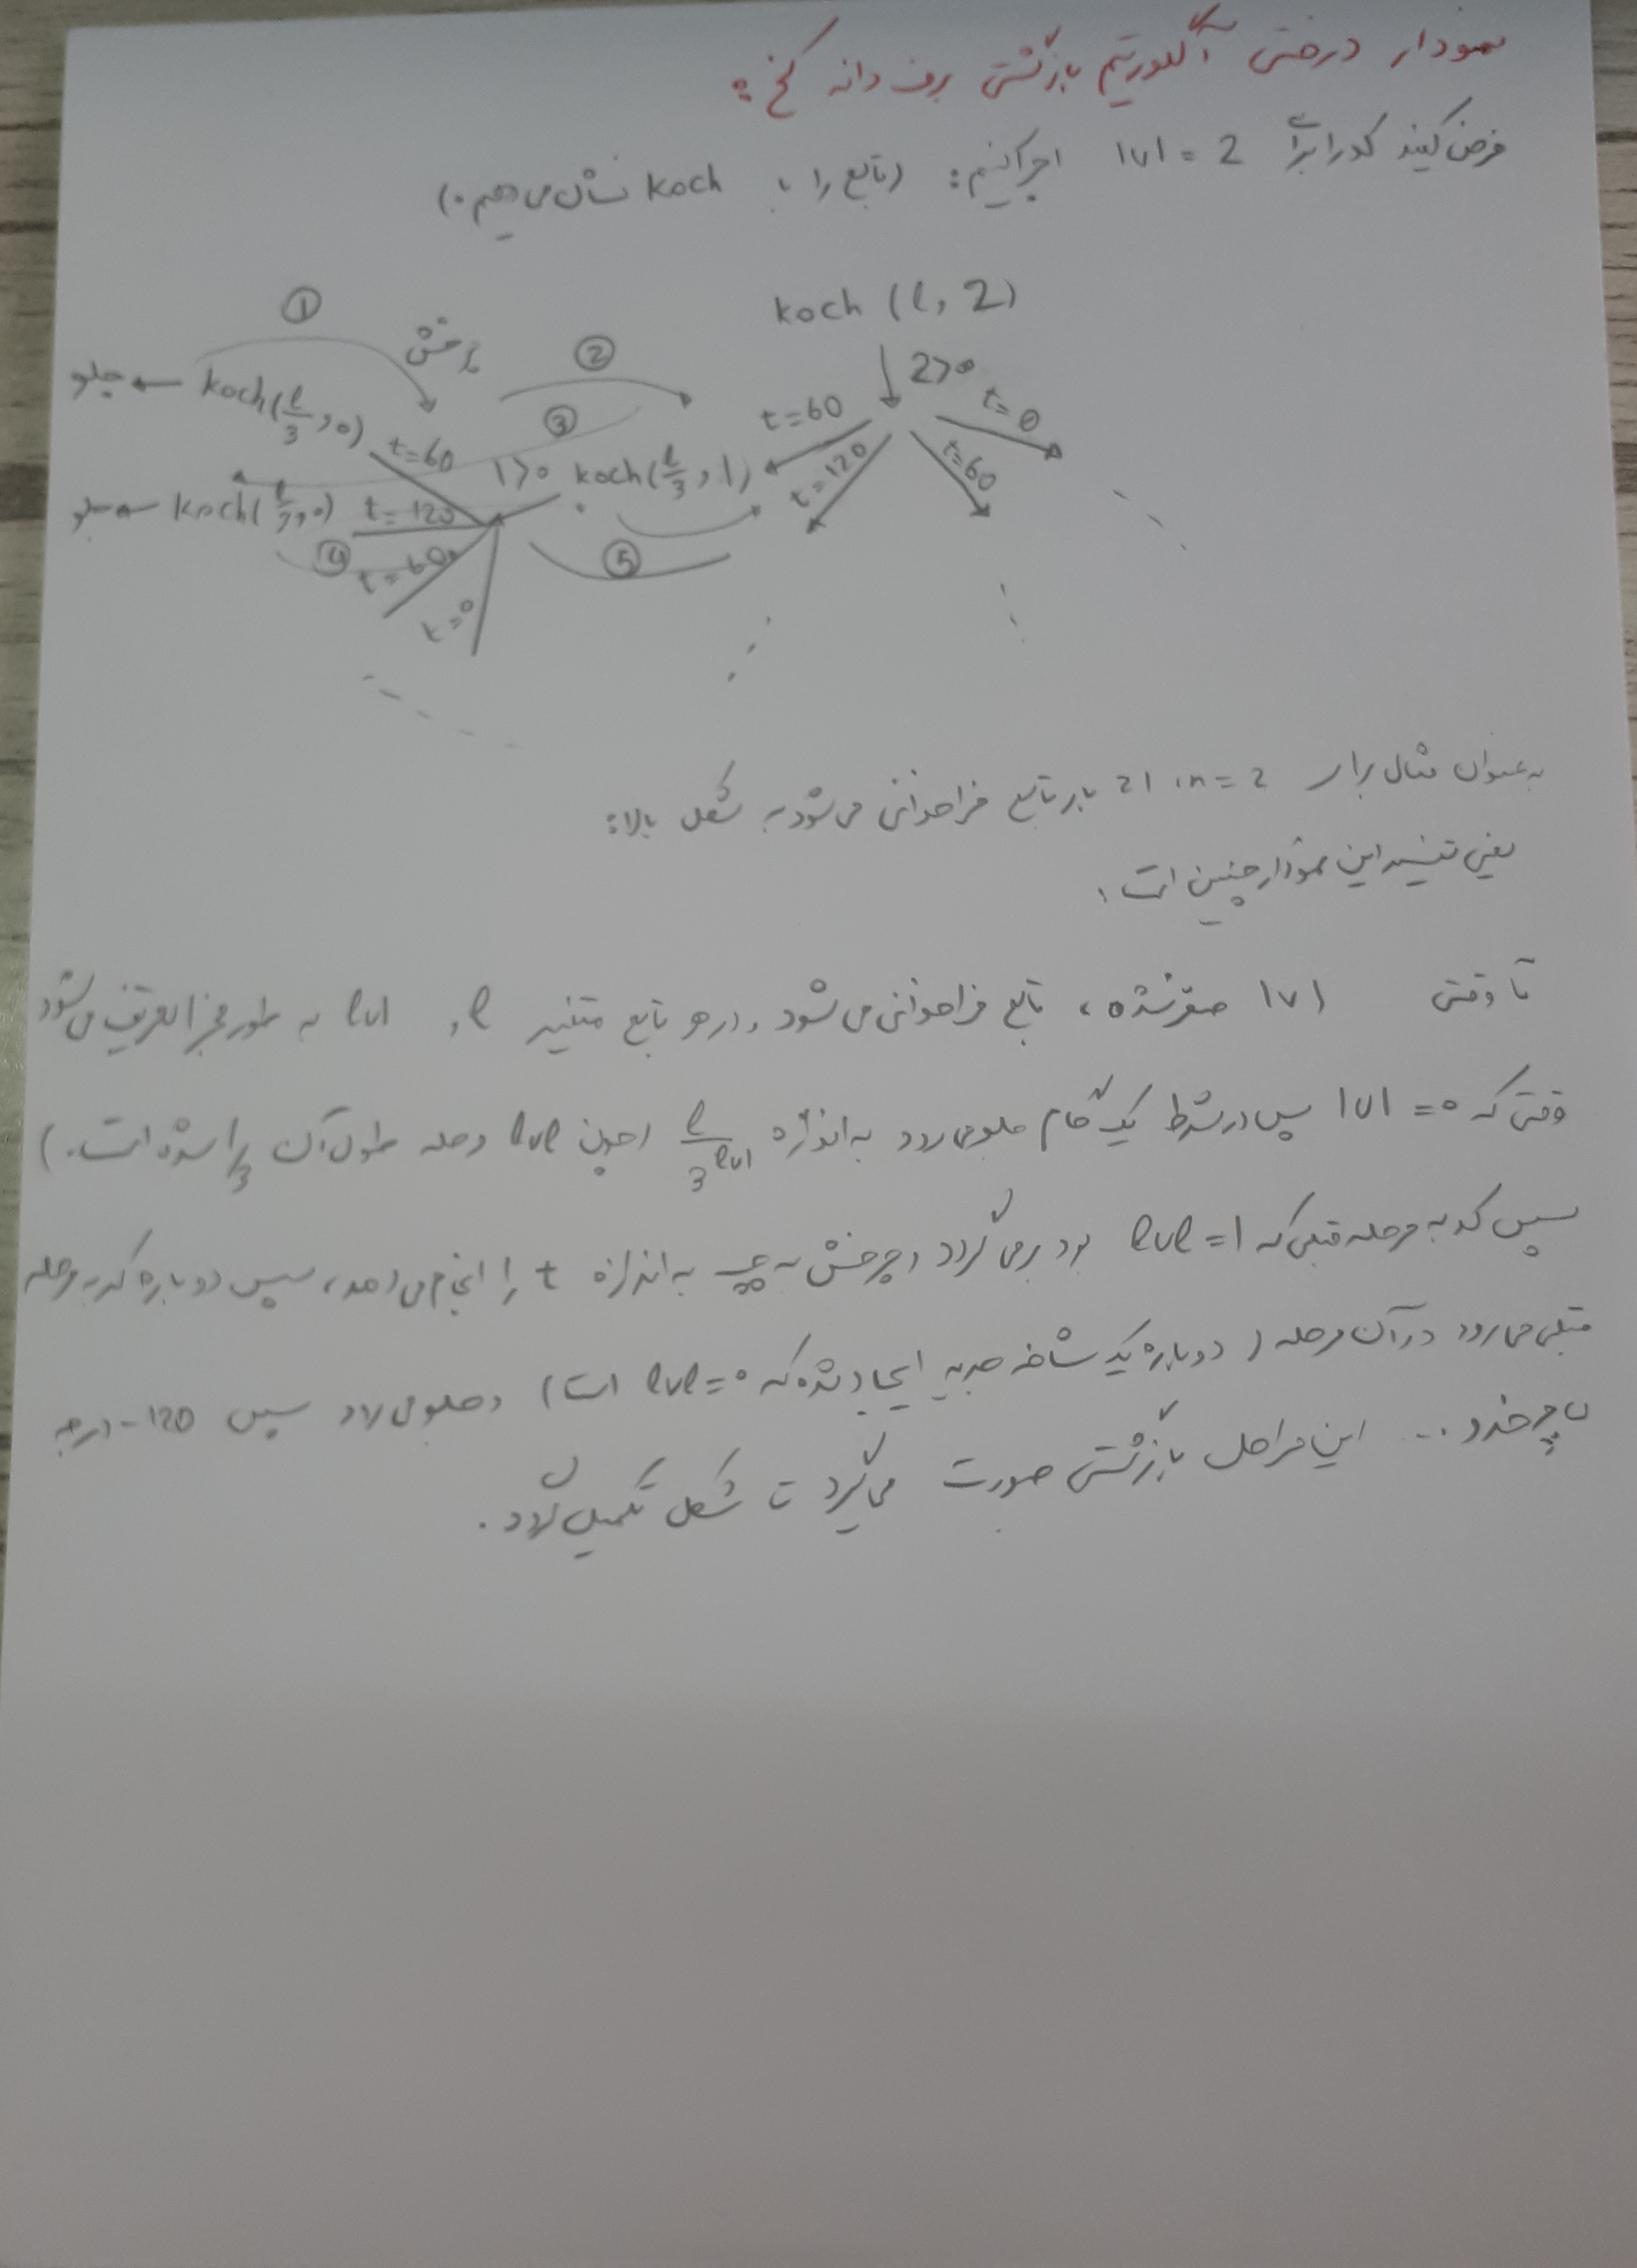 نمودار درختی الگوریتم بازگشتی برف دانه کخ:
فرض کنید کد را برای lvl = 2 اجرا کنیم: (تابع را با koch نشان می دهیم.)
koch (l, 2)
2>0
t=60
t=120
t=60
t=0
koch(l/3, 1)
1>0
①
چرخش
②
③
④
⑤
جلو ← koch(l/3, 0)
t=60
جلو ← koch(l/3, 0)
t=120
t=60
t=0
به عنوان مثال برای n = 2، 21 بار تابع فراخوانی می شود به شکل بالا:
یعنی تفسیر این نمودار چنین است:
تا وقتی lvl صفر نشده، تابع فراخوانی می شود و در هر تابع متغیر l و lvl به طور مجزا تعریف می شود
وقتی که lvl = 0 پس در شرط یک گام جلو می رود به اندازه l/3^lvl (چون lvl مرحله طول آن 1/3 شده است.)
سپس کد به مرحله قبلی که lvl = 1 بود بر می گردد و چرخش به چپ به اندازه t را انجام می دهد، سپس دوباره کد به مرحله
قبلی می رود در آن مرحله (دوباره یک شاخه جدید ایجاد شده که lvl = 0 است) و جلو می رود سپس 120- درجه
می چرخد ... این مراحل بازگشتی صورت می گیرد تا شکل تکمیل گردد.